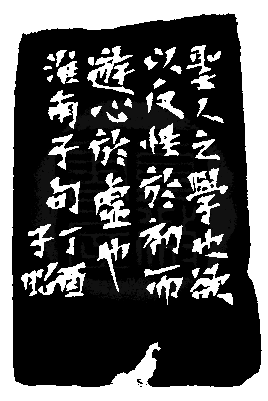 聖人之學也欲
以反性於初而
遊心於虛也
淮南子句丁酉
子